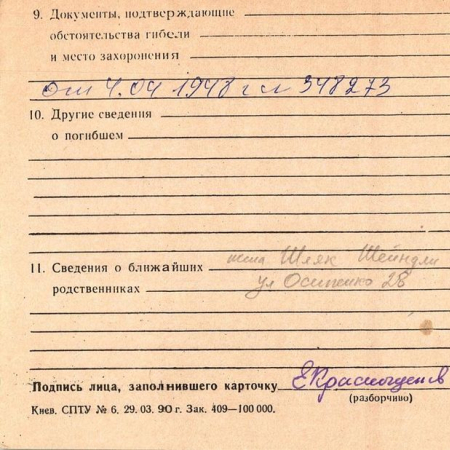 9. Документы, подтверждающие
обстоятельства гибели
и место захоронения
От 4.04 1948 г № 348273
10. Другие сведения
о погибшем
11. Сведения о ближайших жена Шляк Шейндли
родственниках ул Осипенко 28
Подпись лица, заполнившего карточку
(разборчиво)
Киев. СПТУ № 6. 29. 03. 90 г. Зак. 409—100 000.